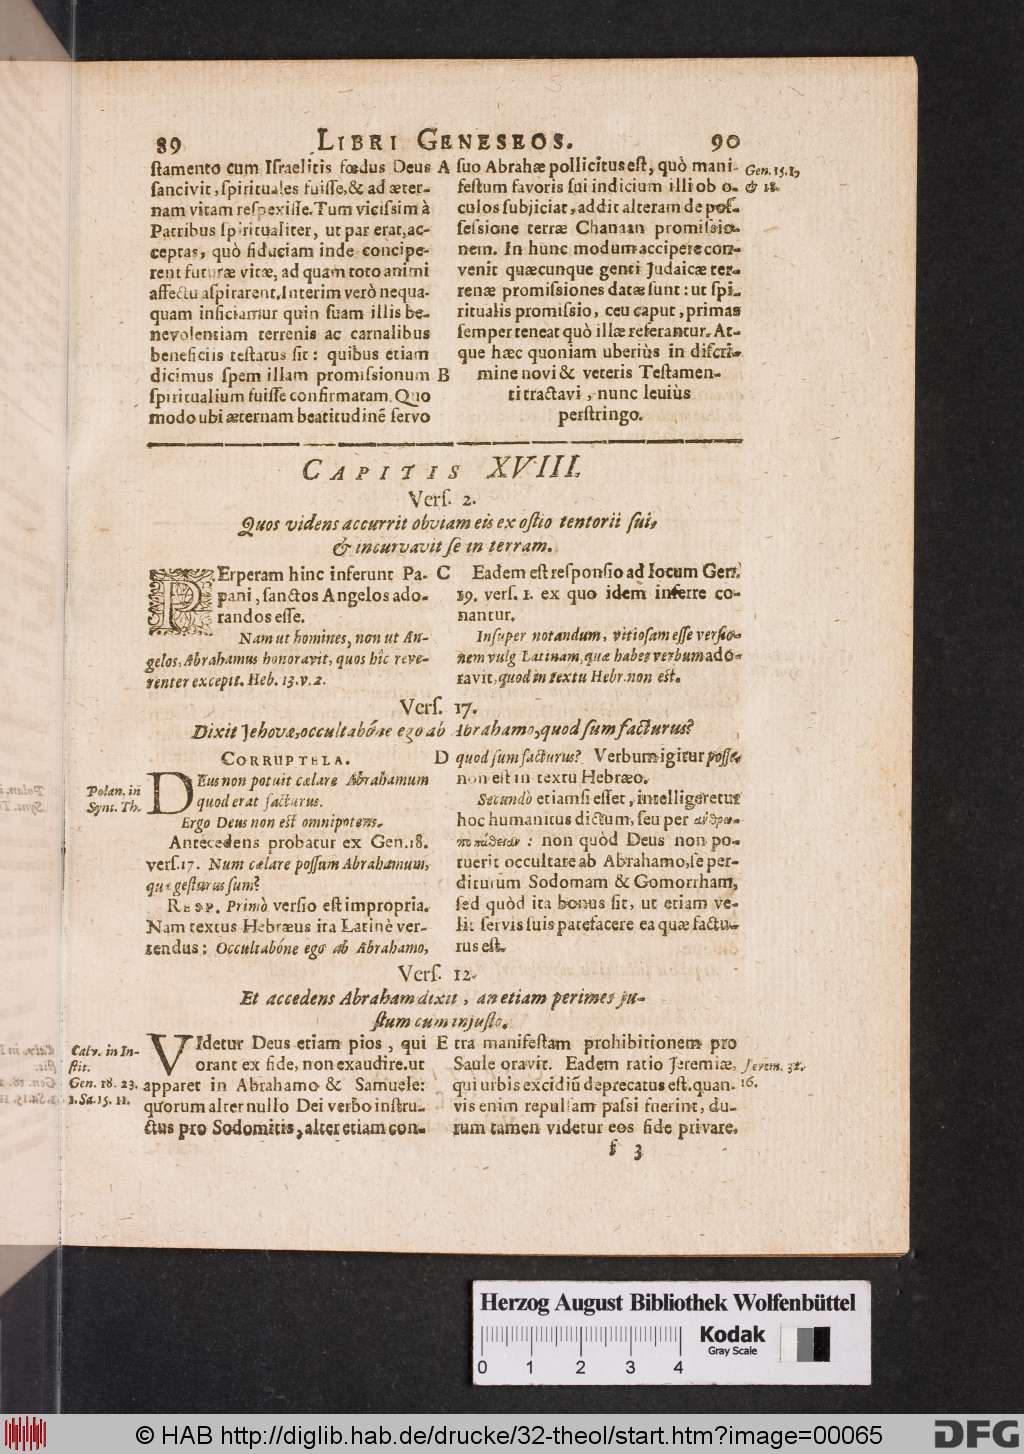 89 LIBRI GENESEOS. 90
ſtamento cum Iſraelitis fœdus Deus A
ſancivit, ſpirituales fuiſſe, & ad æter-
nam vitam reſpexiſſe. Tum viciſſim à
Patribus ſpiritualiter, ut par erat, ac-
ceptas, quò fiduciam inde concipe-
rent futuræ vitæ, ad quam toto animi
affectu aſpirarent. Interim verò nequa-
quam inficiamur quin ſuam illis be-
nevolentiam terrenis ac carnalibus
beneficiis teſtatus ſit: quibus etiam
dicimus ſpem illam promiſſionum B
ſpiritualium fuiſſe confirmatam. Quo
modo ubi æternam beatitudinē ſervo
ſuo Abrahæ pollicitus eſt, quò mani-
feſtum favoris ſui indicium illi ob o-
culos ſubjiciat, addit alteram de poſ-
ſeſſione terræ Chanaan promiſſio-
nem. In hunc modum accipere con-
venit quæcunque genti Judaicæ ter-
renæ promiſſiones datæ ſunt: ut ſpi-
ritualis promiſſio, ceu caput, primas
ſemper teneat quò illæ referantur. At-
que hæc quoniam uberiùs in diſcri-
mine novi & veteris Teſtamen-
ti tractavi, nunc leviùs
perſtringo.
Gen. 15. 1,
& 18.
CAPITIS XVIII.
Verſ. 2.
Quos videns accurrit obviam eis ex oſtio tentorii ſui,
& incurvavit ſe in terram.
PErperam hinc inferunt Pa- C
pani, ſanctos Angelos ado-
randos eſſe.
Nam ut homines, non ut An-
gelos, Abrahamus honoravit, quos hîc reve-
renter excepit. Heb. 13. v. 2.
Eadem eſt reſponſio ad locum Gen.
19. verſ. 1. ex quo idem inferre co-
nantur.
Inſuper notandum, vitioſam eſſe verſio-
nem vulg Latinam, quæ habet verbum ado-
ravit, quod in textu Hebr. non eſt.
Verſ. 17.
Dixit Jehova, occultabóne ego ab Abrahamo, quod ſum facturus?
CORRUPTELA. D
DEus non potuit cælare Abrahamum
quod erat facturus.
Ergo Deus non eſt omnipotens.
Antecedens probatur ex Gen. 18.
verſ. 17. Num cælare poſſum Abrahamum,
quæ geſturus ſum?
RESP. Primò verſio eſt impropria.
Nam textus Hebræus ita Latinè ver-
tendus: Occultabóne ego ab Abrahamo,
Polan. in
Synt. Th.
quod ſum facturus? Verbum igitur poſſe,
non eſt in textu Hebræo.
Secundò etiamſi eſſet, intelligeretur
hoc humanitus dictum, ſeu per ἀνθρω-
ποπάθειαν: non quòd Deus non po-
tuerit occultare ab Abrahamo, ſe per-
diturum Sodomam & Gomorrham,
ſed quòd ita bonus ſit, ut etiam ve-
lit ſervis ſuis patefacere ea quæ factu-
rus eſt.
Verſ. 12.
Et accedens Abraham dixit, an etiam perimes ju-
ſtum cum injuſto.
VIdetur Deus etiam pios, qui E
orant ex fide, non exaudire. ut
apparet in Abrahamo & Samuele:
quorum alter nullo Dei verbo inſtru-
ctus pro Sodomitis, alter etiam con-
Calv. in In-
ſtit.
Gen. 18. 23.
1. Sa. 15. 11.
tra manifeſtam prohibitionem pro
Saule oravit. Eadem ratio Jeremiæ,
qui urbis excidiū deprecatus eſt. quan-
vis enim repulſam paſſi fuerint, du-
rum tamen videtur eos fide privare.
Jerem. 32.
16.
f 3
Herzog August Bibliothek Wolfenbüttel
0 1 2 3 4
Kodak
Gray Scale
© HAB http://diglib.hab.de/drucke/32-theol/start.htm?image=00065
DFG